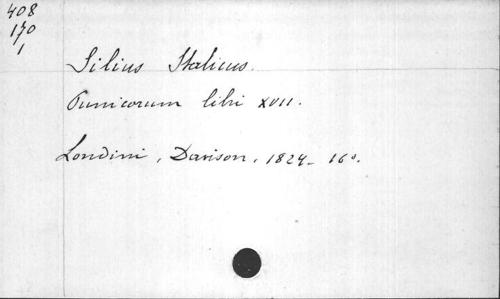 408
170
1
Silius Italicus.
Punicorum libri XVII.
Londini, Davison, 1824_ 16°.